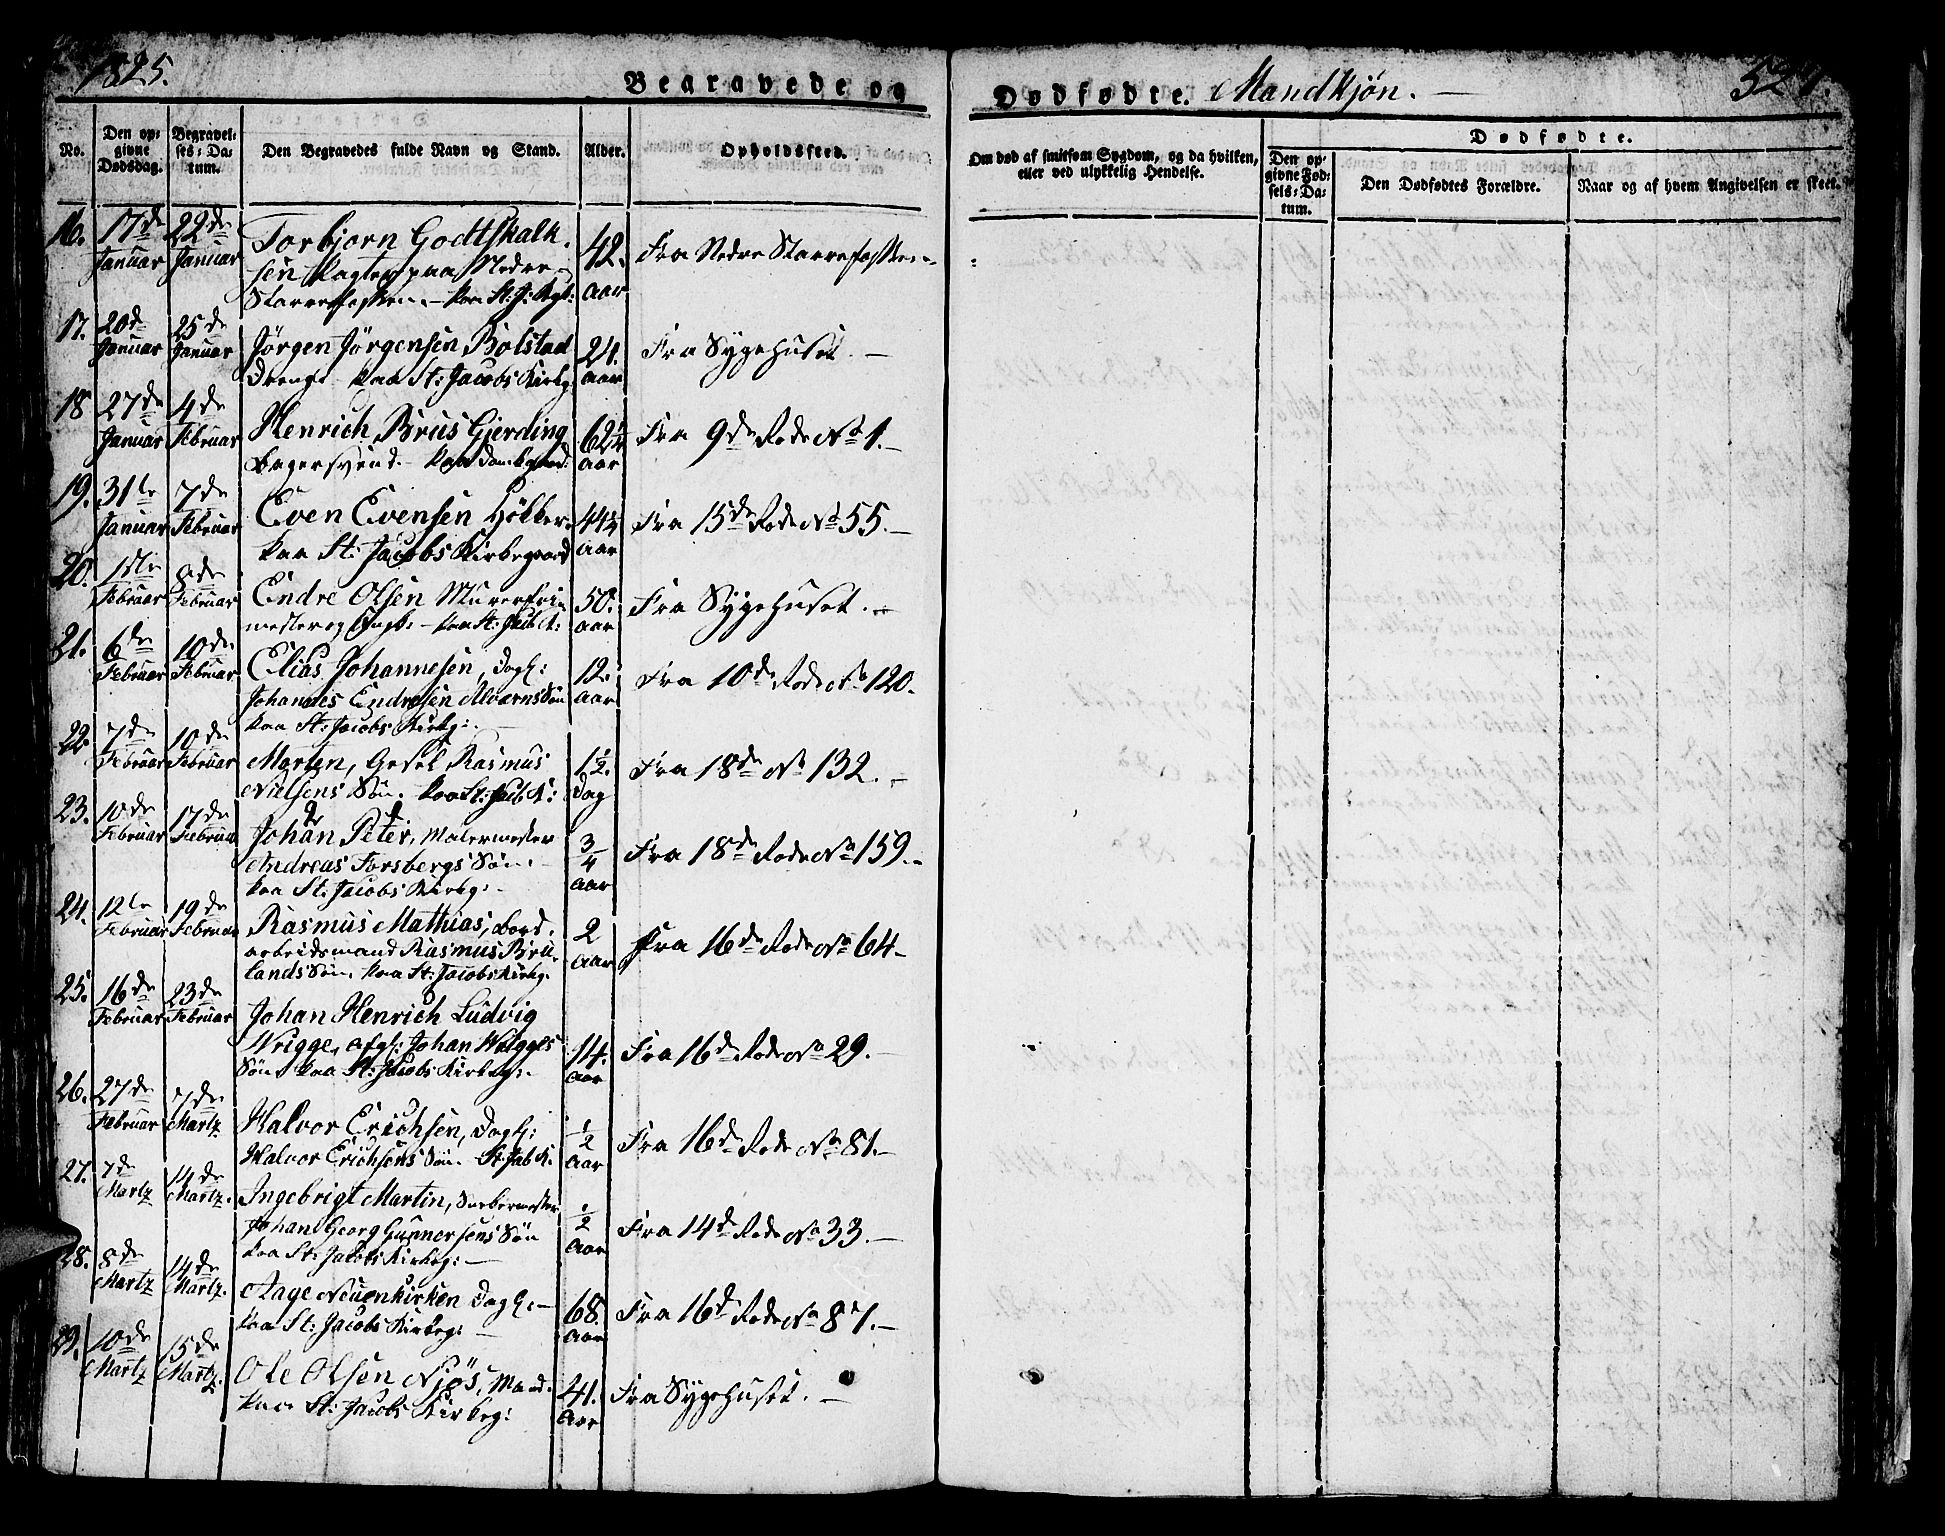 1825.
Begravede og
Dødfødte. Mandkjøn. —
No.
Den op-
givne
Dødsdag.
Begravel-
ses-Da-
tum.
Den Begravedes fulde Navn og Stand.
Alder.
Opholdssted.
Om død af smitsom Sygdom, og da hvilken,
eller ved ulykkelig Hendelse.
Dødfødte.
Den op-
givne Fød-
sels-Da-
tum.
Den Dødfødtes Forældre.
Naar og af hvem Angivelsen er skeet.
16. 17de Januar 22de Januar
Torbjorn Godtskalk-
sen paa Nedre
42. Aar
Fra Nedre
17. 20de Januar 25de Januar
Jörgen Jörgensen Bolstad
Dreng. paa St: Jacobs Kirkg:
24. Aar
Fra Sygehuset. —
18 27de Januar 4de Februar
Henrich Brus Gjerding
Bagersvend. — paa
62½ Aar
Fra 9de Rode No 1. —
19. 31te Januar 7de Februar
Even Evensen Hökker.
paa St: Jacobs Kirkegaard
44½ Aar
Fra 15de Rode No 55. —
20. 1ste Februar 8de Februar
Endre Olsen Murerfri-
mester og — paa St: Jacb. K:
50. Aar
Fra Sygehuset. —
21. 6de Februar 10de Februar
Elias Johannesen, Dagl:
Johannes Endresen Alværns Sön
paa St: Jacobs Kirkg: —
12. Aar
Fra 10de Rode No 120.
22. 7de Februar 10de Februar
Morten, Gesel Rasmus
Nielsens Sön. paa St: Jacb K:
1½. Dag
Fra 18de No 132. —
23. 10de Februar 17de Februar
Johan Peter, Malermester
Andreas Forsbergs Sön.
paa St: Jacobs Kirkg: —
3/4 Aar
Fra 18de Rode No 159. —
24. 12te Februar 19de Februar
Rasmus Mathias, Bord-
arbeidsmand Rasmus Bru-
lands Sön. paa St: Jacobs Kirkg.
2 Aar
Fra 16de Rode No 64 —
25. 16de Februar 23de Februar
Johan Henrich Ludvig
Wrigge, afg: Johan Wrigges
Sön paa St: Jacobs Kirkeg: —
14. Aar
Fra 16de Rode No 29. —
26. 27de Februar 7de Martz
Halvor Erichsen, Dagl:
Halvor Erichsens Sön. St: Jab K.
½ Aar
Fra 16de Rode No 81. —
27. 7de Martz 14de Martz.
Ingebrigt Martin,
Johan Georg Gunnersens Sön
paa St: Jacobs Kirkeg: —
½ Aar
Fra 14de Rode No 33. —
28. 8de Martz 14de Martz.
Aage Nüenkirken Dagl: —
paa St: Jacobs Kirkeg: —
68. Aar
Fra 16de Rode No 87. —
29. 10de Martz 15de Martz.
Ole Olsen Njös, Mand.
paa St: Jacobs Kirkeg:
41. Aar
Fra Sygehuset. —